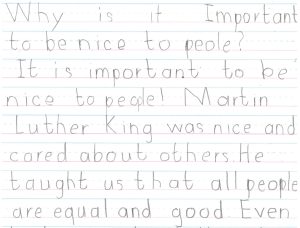 Why is it Important
to be nice to peole?
It is important to be
nice to people! Martin
Luther King was nice and
cared about others. He
taught us that all people
are equal and good. Even